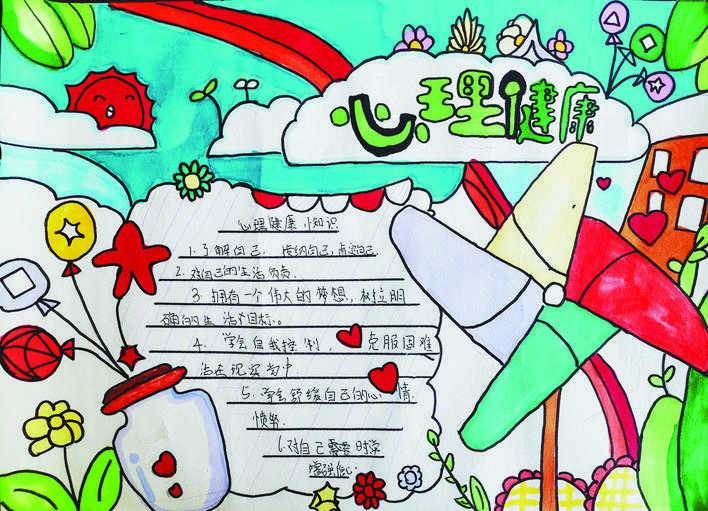 心理健康
心理健康小知识
1.了解自己，接纳自己，肯定自己
2.对自己的生活负责.
3.拥有一个伟大的梦想，树立明
确的生活目标。
4.学会自我控制，克服困难
活在现实当中
5.学会舒缓自己的心情
愤怒.
6.对自己需要时常
增强信心.